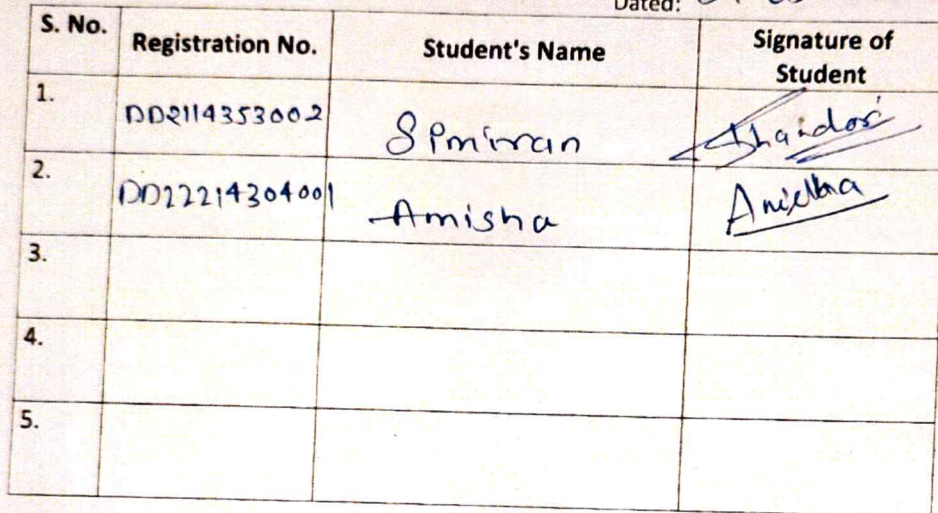 Dated:
S. No. Registration No. Student's Name Signature of Student
1. DD2114353002 Simiran
2. DD22214304001 Amisha
3.
4.
5.